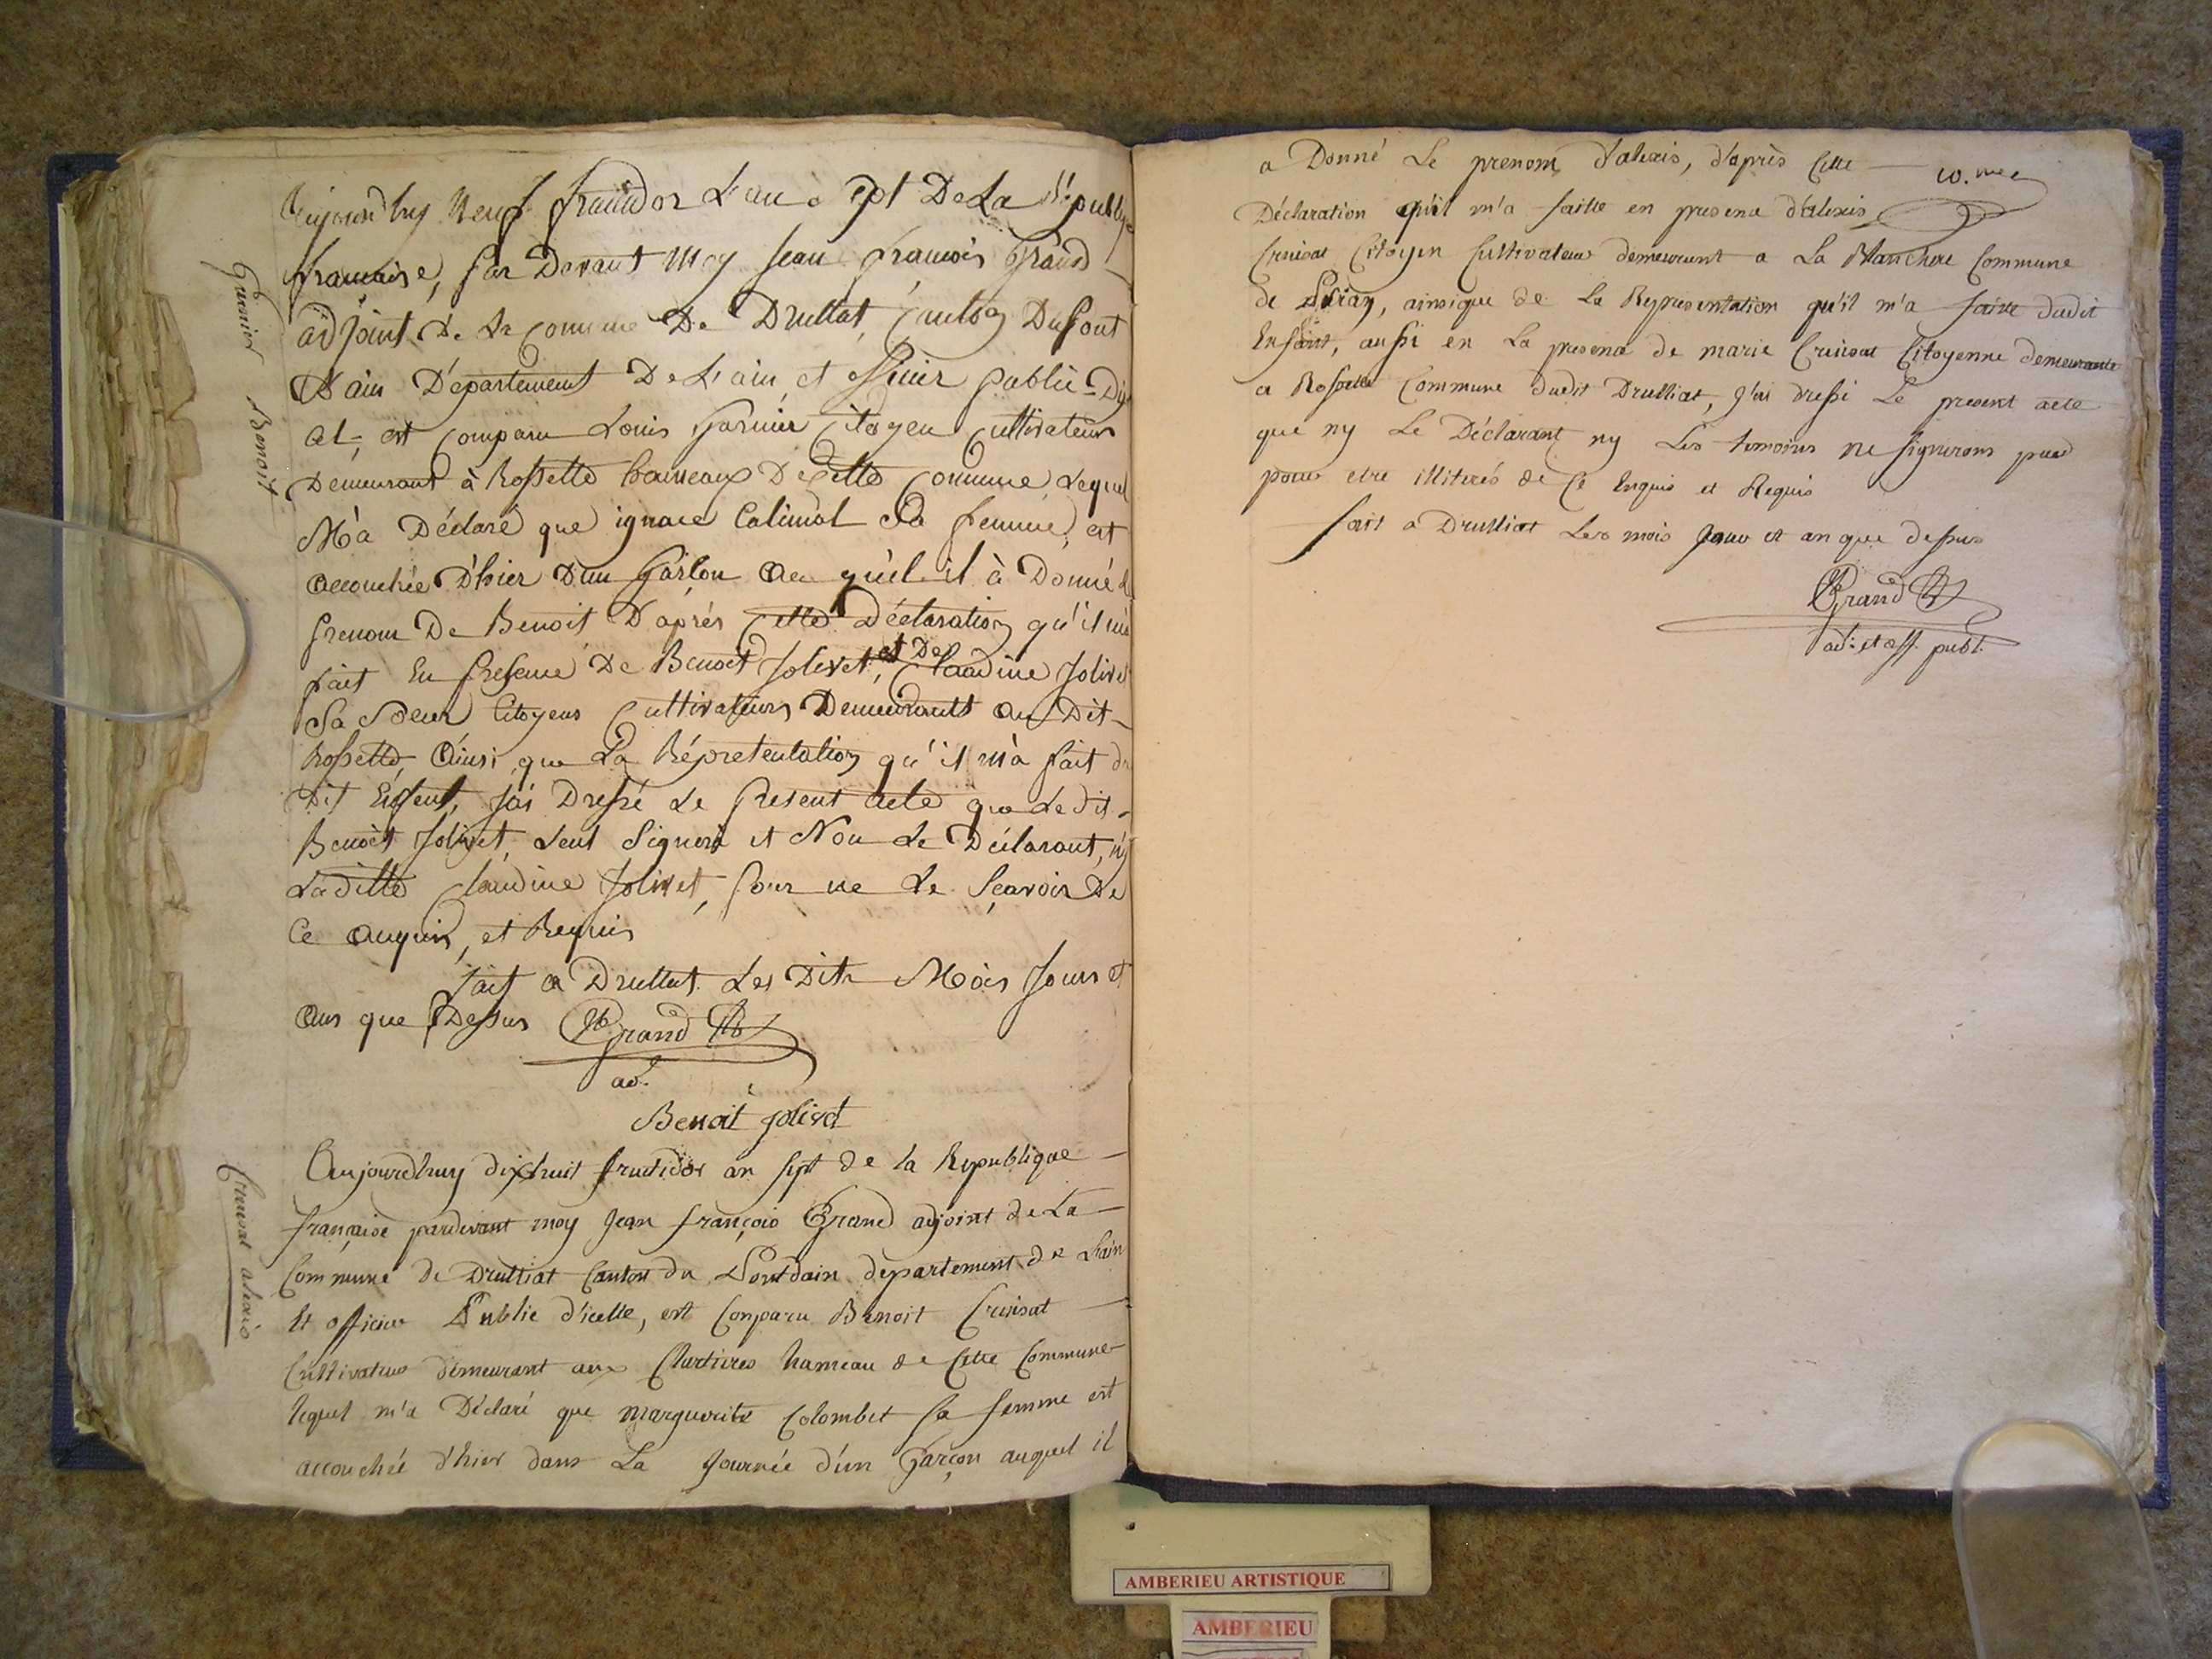 Aujourd'huy Neuf fructidor L'an Sept De La Républiq
francaise, par Devant Moy Jean francois Grand
adjoint De La Commune De Druillat, Canton Du pont
D'ain Département De L'ain, et officier public
est Comparu Louis Garnier Citoyen Cultivateur
Demeurant à Rossette hameaux De Cette Commune, Lequel
M'a Déclaré que ignace Calimot Sa femme, est
accouchée D'hier D'un Garson au quel il à Donné
prenom De Benoit D'aprés Cette Déclaration qu'il m'a
fait En presence De Benoet Jolivet, et De Claudine Jolivet
Sa Soeur Citoyens Cultivateurs Demeurants au Dit
Rossette, Ainsi que La Répretentation qu'il m'a fait du
Dit Enfent, J'ai Dressé Le present acte que Le dit
Benoèt Jolivet, Seul Signera et Non Le Déclarant, ny
Laditte Claudine Jolivet, pour ne Le Sçavoir De
Ce anquis, et Requis
fait a Druillat Les Dits Mois Jours et
ans que Dessus Grand
ad.
Benoit jolivet
Garnier Benoit
Aujourdhuy dixhuit fructidor an sept de la Republique
française pardevant moy Jean françois Grand adjoint de La
Commune de Druilliat Canton du Pontdain departement de Lain
Et officier Public d'icelle, est Comparu Benoit Cruisat
Cultivateur demeurant aux hameau de Cette Commune
lequel m'a Déclaré que marguerite Colombet sa femme est
accouchée d'hier dans La Journée d'un Garçon auquel il
Cruisat alexis
a Donné Le prenom d'alexis, d'après Cette
10.me
Déclaration qu'il m'a faitte en presence d'alexis
Cruisat Citoyen Cultivateur demeurant a La Blanchere Commune
de, ainsique de La Representation qu'il m'a faitte dudit
Enfant, aussi en La presence de marie Cruisat Citoyenne demeurante
a Rossette Commune dudit Drulliat, J'ai dressé Le present acte
que ny Le Déclarant ny Les temoins ne signerons pas
pour etre illiterés de Ce Enquis et Requis
fait a Drulliat Les mois Jour et an que dessus
Grand
ad. et off. publ.
AMBERIEU ARTISTIQUE
AMBERIEU